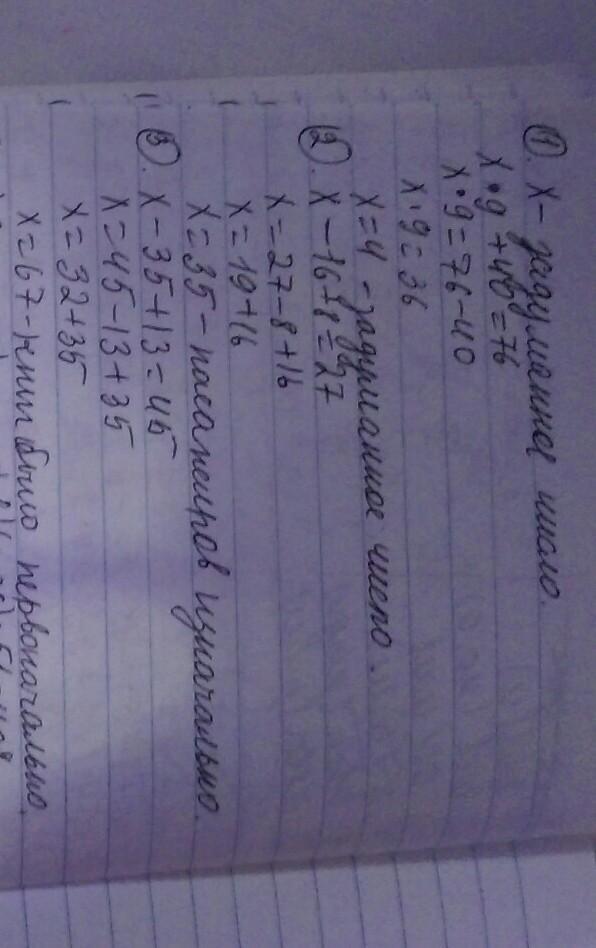 ①. x - задуманное число.
x • 9 + 40 = 76
x • 9 = 76 - 40
x • 9 = 36
x = 4 - задуманное число.
②. x - 16 + 8 = 27
x = 27 - 8 + 16
x = 19 + 16
x = 35 - пасажиров изначально.
③. x - 35 + 13 = 45
x = 45 - 13 + 35
x = 32 + 35
x = 67 - книг было первоначально.